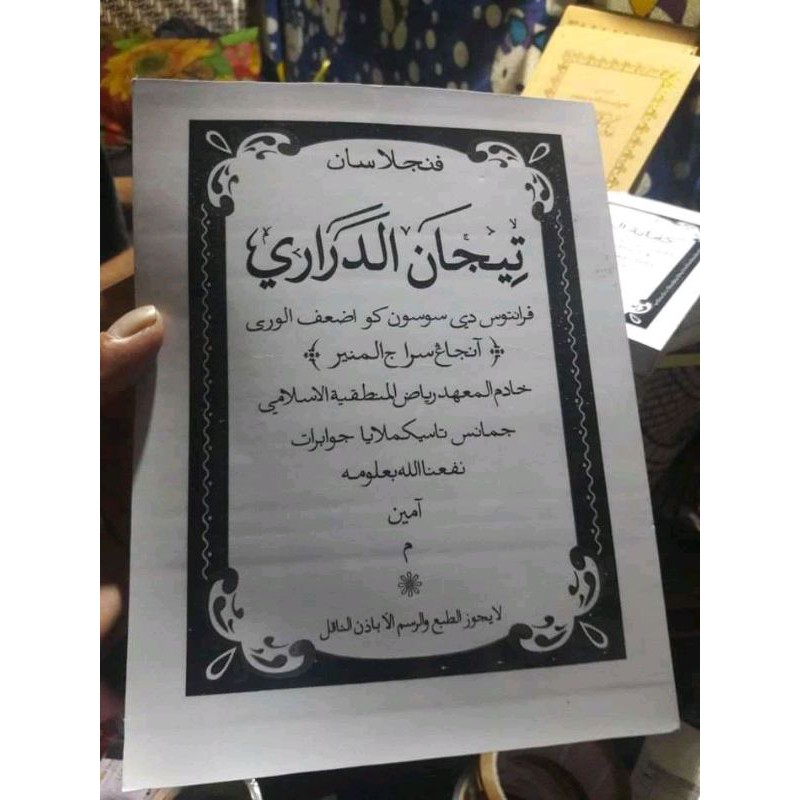 فنجلاسان
تِيْجَانَ الدَّرَارِيْ
فرانتوس دي سوسون كو اضعف الورى
﴿ آنجاڠ سراج المنير ﴾
خادم المعهد رياض المنطقية الاسلامي
جمانس تاسيكملايا جوابرات
نفعنا الله بعلومه
آمين
م
لا يجوز الطبع والرسم الا باذن الناقل